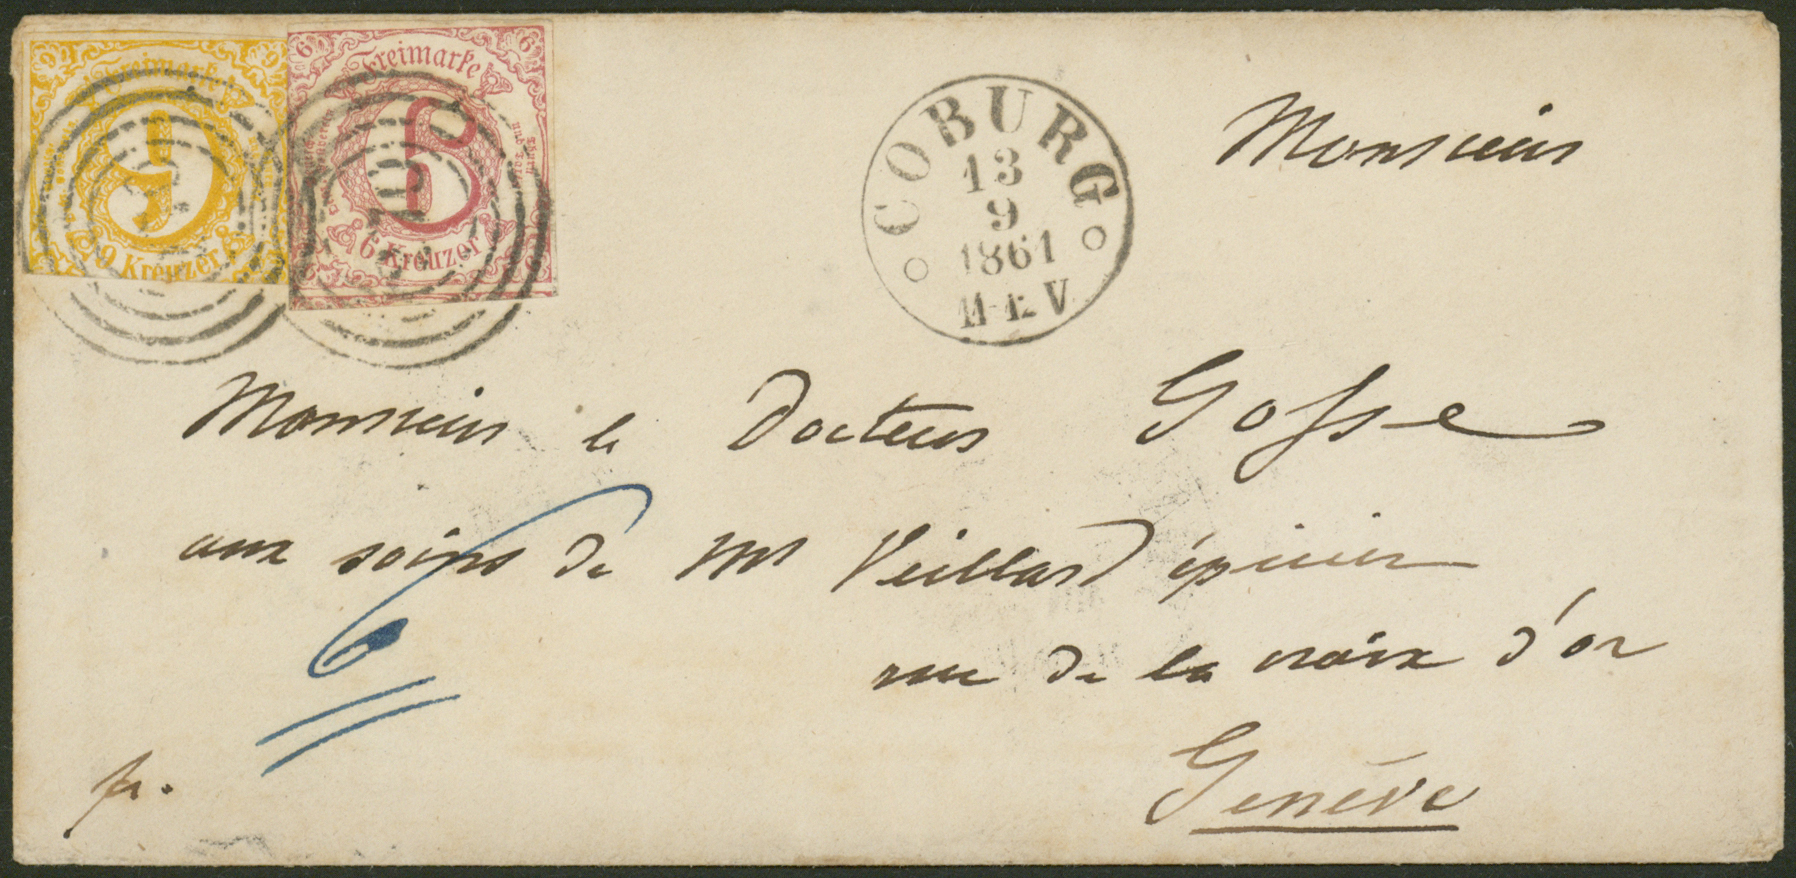 Freimarke
9 Kreuzer
Freimarke
6
6 Kreuzer
COBURG
13
9
1861
11-12 V.
Monsieur
Monsieur le Docteur Gosse
aux soins de Mr Veillard épicier
rue de la croix d'or
Genève
6
fr.